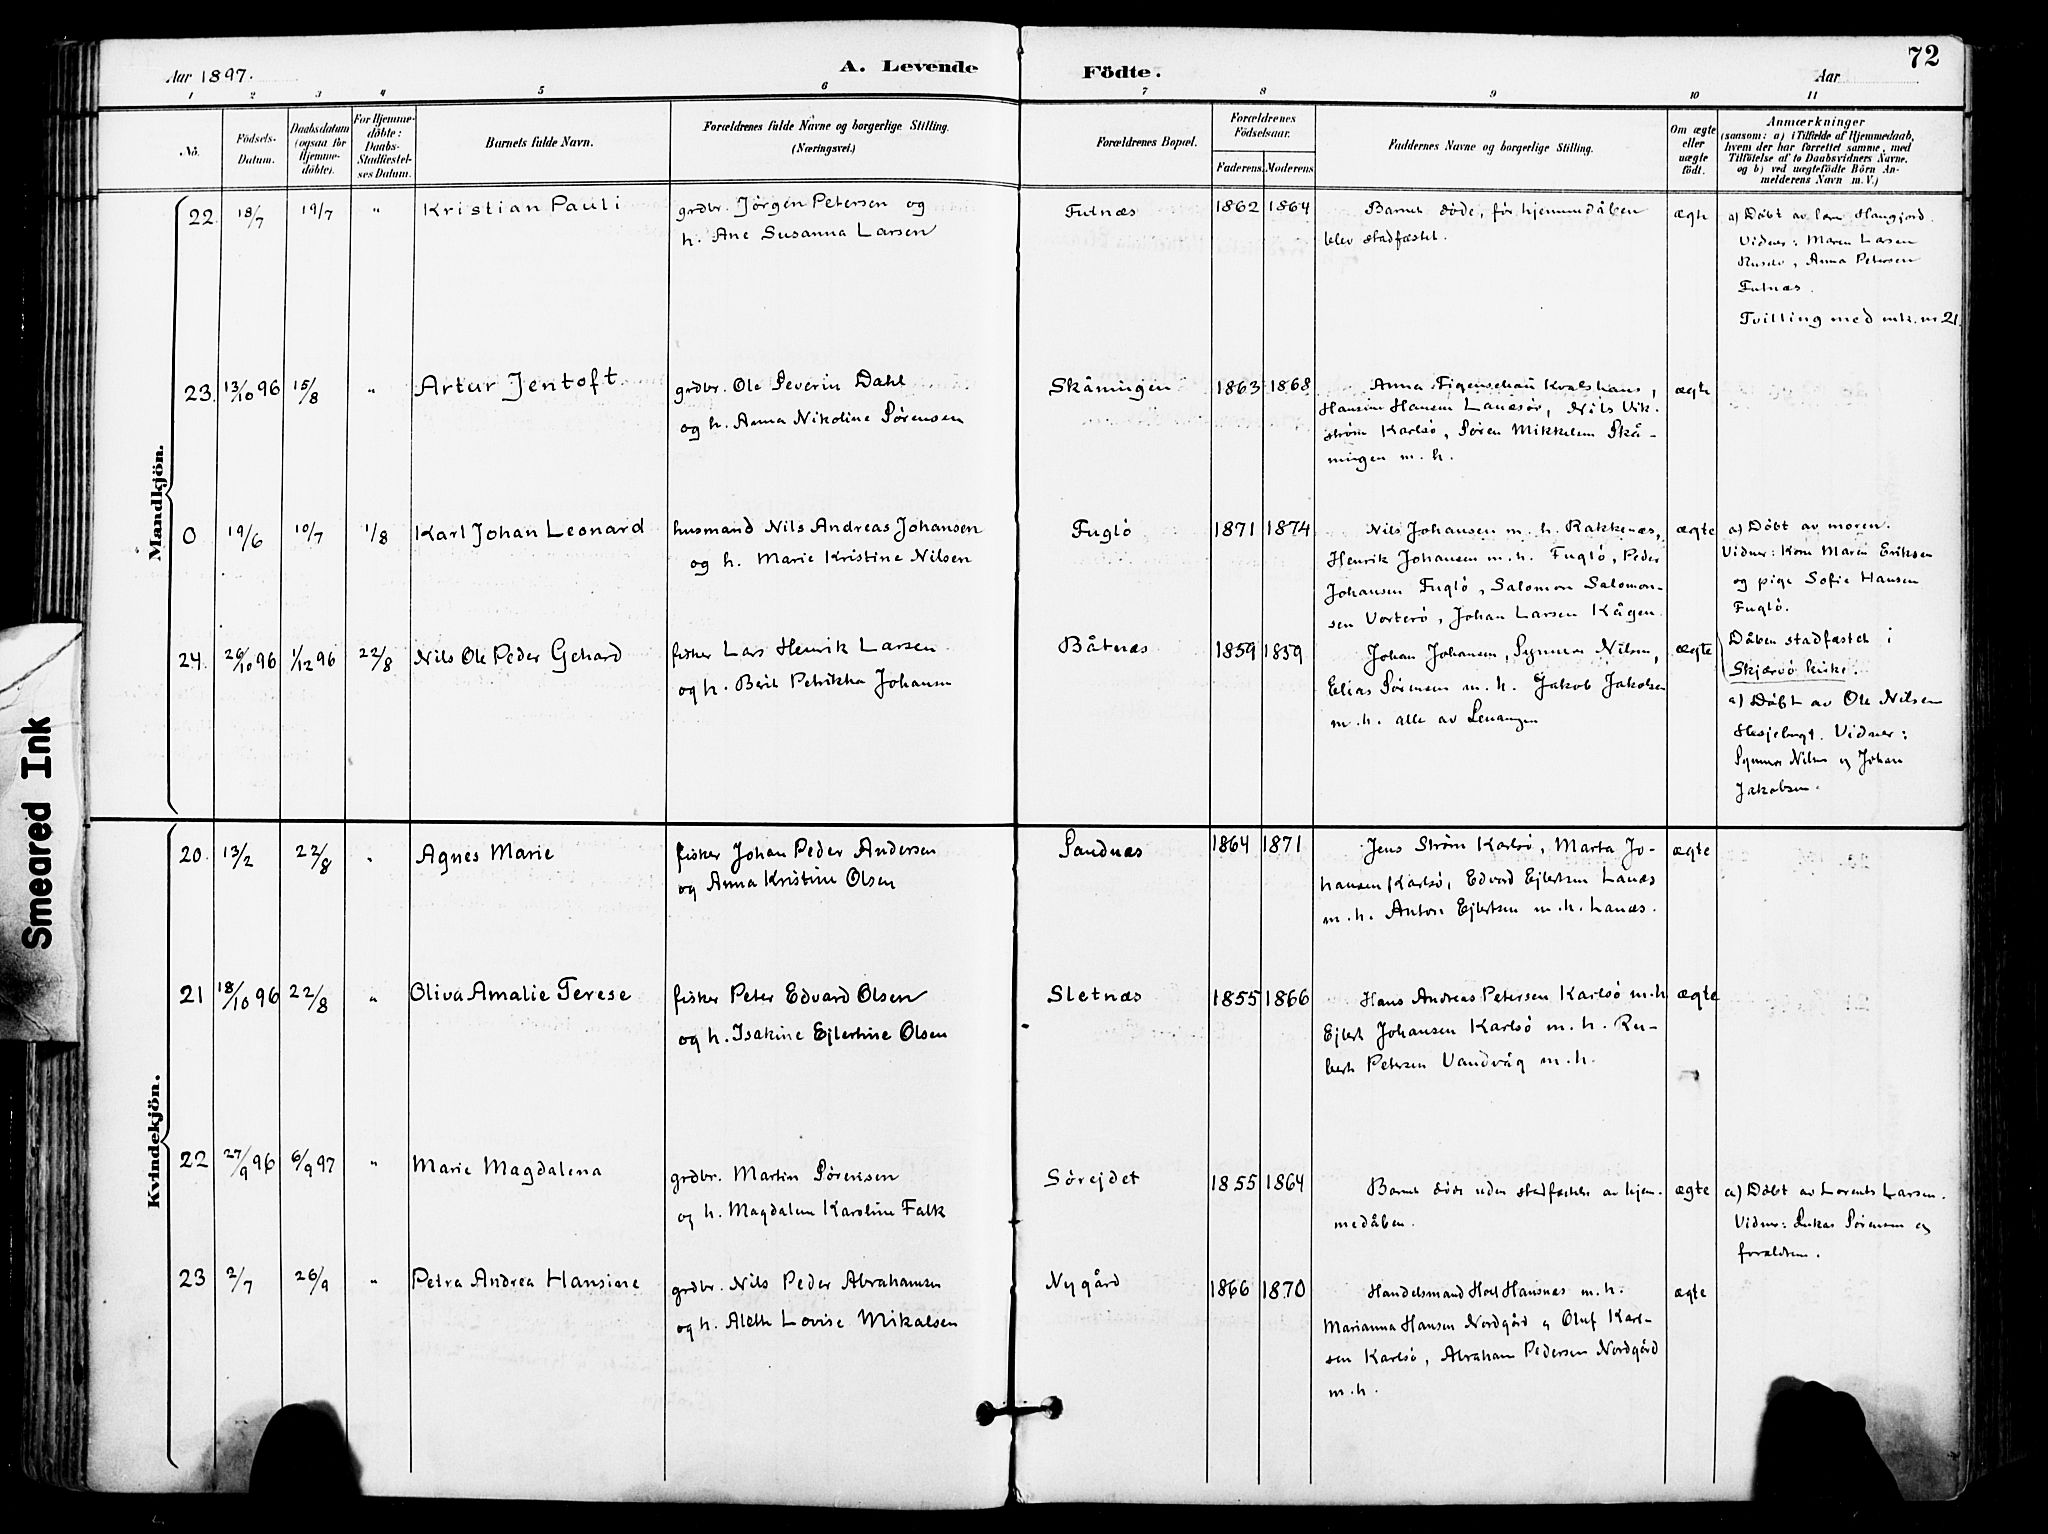 72
Aar 1897.
A. Levende Födte.
Aar
1 2 3 4 5 6 7 8 9 10 11
No.
Födsels-
Datum.
Daabsdatum
(ogsaa for
Hjemme-
döbte).
For Hjemme-
döbte:
Daabs-
Stadfæstel-
ses Datum.
Barnets fulde Navn.
Forældrenes fulde Navne og borgerlige Stilling.
(Næringsvei.)
Forældrenes Bopæl.
Forældrenes
Födselsaar.
Faderens. Moderens
Faddernes Navne og borgerlige Stilling.
Om ægte
eller
uægte
födt.
Anmærkninger
(saasom: a) i Tilfælde af Hjemmedaab,
hvem der har forrettet samme, med
Tilföielse af to Daabsvidners Navne.
og b) ved uægtefödte Börn An-
melderens Navn m. V.)
Mandkjön.
22. 18/7 19/7 " Kristian Pauli
grdbr. Jørgen Petersen og
h. Ane Susanna Larsen
Futnæs 1862 1864
Barnet døde, før hjemmedåben
blev stadfæstet.
ægte
a) Døbt av
Vidner: Maren Larsen
Anna Petersen
Futnæs.
Tvilling med mk. nr 21.
23. 13/10 96 15/8 " Artur Jentoft
grdbr. Ole Severin Dahl
og h. Anna Nikoline Sørensen
Skåningen 1863 1868
Anna Figenschau Kvalshaus,
Hansine Hansen Lanesør, Nils Vik-
strøm Karlsø, Søren Mikkelsen Skå-
ningen m. h.
ægte
0 19/6 10/7 1/8 Karl Johan Leonard
husmand Nils Andreas Johansen
og h. Marie Kristine Nilsen
Fuglø 1871 1874
Nils Johansen m. h. Rakkenæs,
Henrik Johansen m. h. Fuglø, Peder
Johansen Fuglø, Salomon Salomon-
sen Vorterø, Johan Larsen Kågen.
ægte
a) Døbt av moren.
Vidner: Kone Maren Eriksen
og pige Sofie Hansen
Fuglø.
24. 26/10 96 1/12 96 22/8 Nils Ole Peder Gehard
fisker Lars Henrik Larsen
og h. Berit Petrikka Johansen
Båtnæs 1859 1859
Johan Johansen, Synnøve Nilsen,
Elias Sørensen m. h. Jakob Jakobsen
m. h. alle av Lenangen
ægte
Dåben stadfæstet i
Skjærvø kirke.
a) Døbt av Ole Nilsen
Hesjebugt. Vidner:
Synnøve Nilsen og Johan
Jakobsen.
Kvindekjön.
20. 13/2 22/8 " Agnes Marie
fisker Johan Peder Andersen
og Anna Kristine Olsen
Sandnæs 1864 1871
Jens Strøm Karlsø, Marta Jo-
hansen Karlsø, Edvard Ejlertsen Lanæs
m. h. Anton Ejlertsen m. h. Lanæs.
ægte
21 18/10 96 22/8 " Oliva Amalie Terese
fisker Peter Edvard Olsen
og h. Isakine Ejlertine Olsen
Sletnæs 1855 1866
Hans Andreas Petersen Karlsø m. h
Ejlert Johansen Karlsø m. h. Ru-
bert Petersen Vandvåg m. h.
ægte
22 27/9 96 6/9 97 " Marie Magdalena
grdbr. Martin Sørensen
og h. Magdalene Karoline Falk
Sørejdet 1855 1864
Barnet døde uden stadfæstelse av hjem-
medåben.
ægte
a) Døbt av Lorents Larsen.
Vidner: Lukas Sørensen og
forældrene.
23 2/7 26/9 " Petra Andrea Hansine
grdbr. Nils Peder Abrahamsen
og h. Aleth Lovise Mikalsen
Nygård 1866 1870
Handelsmand Hansnæs m. h.
Marianna Hansen Nordgård og Oluf Karl-
sen Karlsø, Abraham Pedersen Nordgård
m. h.
ægte
Smeared Ink